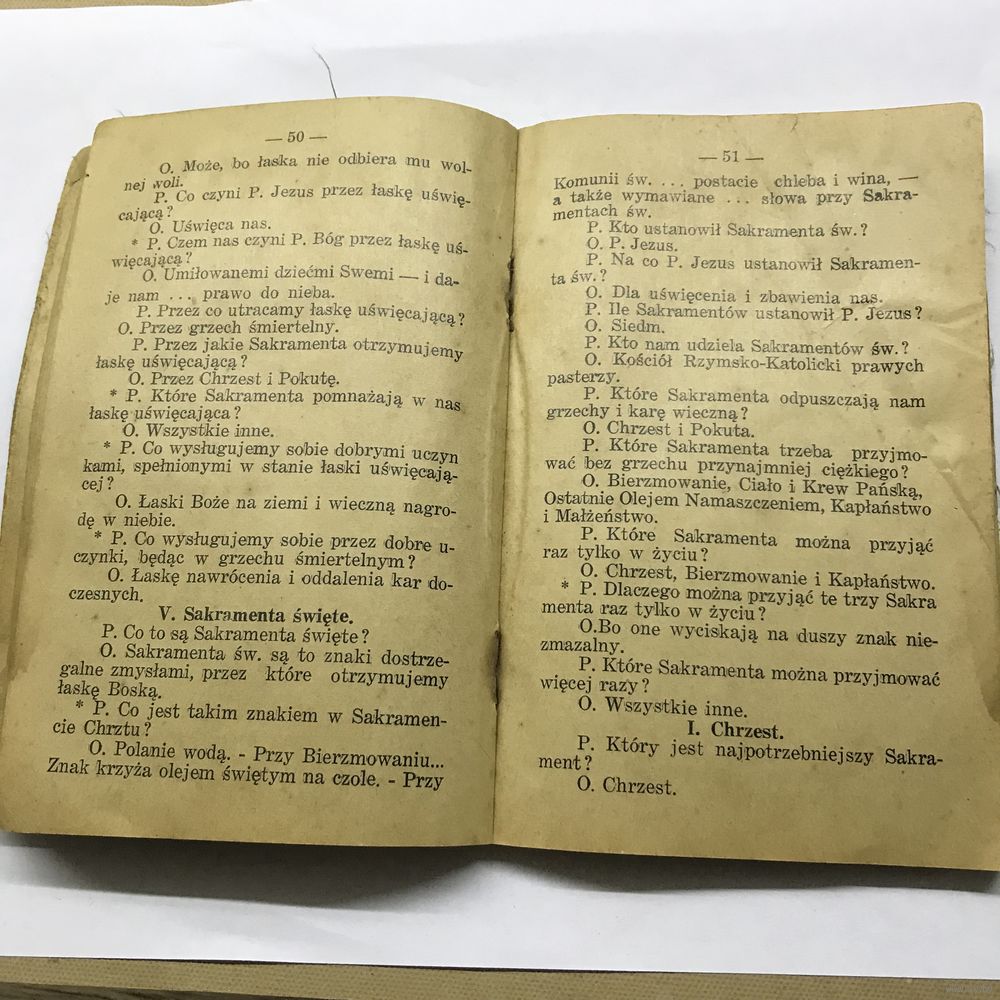 — 50 —
O. Może, bo łaska nie odbiera mu wol-
nej woli.
P. Co czyni P. Jezus przez łaskę uświę-
cającą?
O. Uświęca nas.
* P. Czem nas czyni P. Bóg przez łaskę uś-
więcającą?
O. Umiłowanemi dziećmi Swemi — i da-
je nam ... prawo do nieba.
P. Przez co utracamy łaskę uświęcającą?
O. Przez grzech śmiertelny.
P. Przez jakie Sakramenta otrzymujemy
łaskę uświęcającą?
O. Przez Chrzest i Pokutę.
* P. Które Sakramenta pomnażają w nas
łaskę uświęcająca?
O. Wszystkie inne.
* P. Co wysługujemy sobie dobrymi uczyn
kami, spełnionymi w stanie łaski uświęcają-
cej?
O. Łaski Boże na ziemi i wieczną nagro-
dę w niebie.
* P. Co wysługujemy sobie przez dobre u-
czynki, będąc w grzechu śmiertelnym?
O. Łaskę nawrócenia i oddalenia kar do-
czesnych.
V. Sakramenta święte.
P. Co to są Sakramenta święte?
O. Sakramenta św. są to znaki dostrze-
galne zmysłami, przez które otrzymujemy
łaskę Boską.
* P. Co jest takim znakiem w Sakramen-
cie Chrztu?
O. Polanie wodą. - Przy Bierzmowaniu...
Znak krzyża olejem świętym na czole. - Przy
— 51 —
Komunii św. ... postacie chleba i wina, —
a także wymawiane ... słowa przy Sakra-
mentach św.
P. Kto ustanowił Sakramenta św.?
O. P. Jezus.
P. Na co P. Jezus ustanowił Sakramen-
ta św.?
O. Dla uświęcenia i zbawienia nas.
P. Ile Sakramentów ustanowił P. Jezus?
O. Siedm.
P. Kto nam udziela Sakramentów św.?
O. Kościół Rzymsko-Katolicki prawych
pasterzy.
P. Które Sakramenta odpuszczają nam
grzechy i karę wieczną?
O. Chrzest i Pokuta.
P. Które Sakramenta trzeba przyjmo-
wać bez grzechu przynajmniej ciężkiego?
O. Bierzmowanie, Ciało i Krew Pańską,
Ostatnie Olejem Namaszczeniem, Kapłaństwo
i Małżeństwo.
P. Które Sakramenta można przyjąć
raz tylko w życiu?
O. Chrzest, Bierzmowanie i Kapłaństwo.
* P. Dlaczego można przyjąć te trzy Sakra
menta raz tylko w życiu?
O.Bo one wyciskają na duszy znak nie-
zmazalny.
P. Które Sakramenta można przyjmować
więcej razy?
O. Wszystkie inne.
I. Chrzest.
P. Który jest najpotrzebniejszy Sakra-
ment?
O. Chrzest.